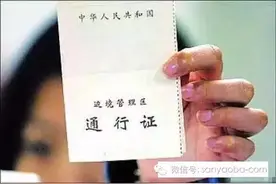 中华人民共和国
边境管理区
通行证
微信号: sanyaobao-com